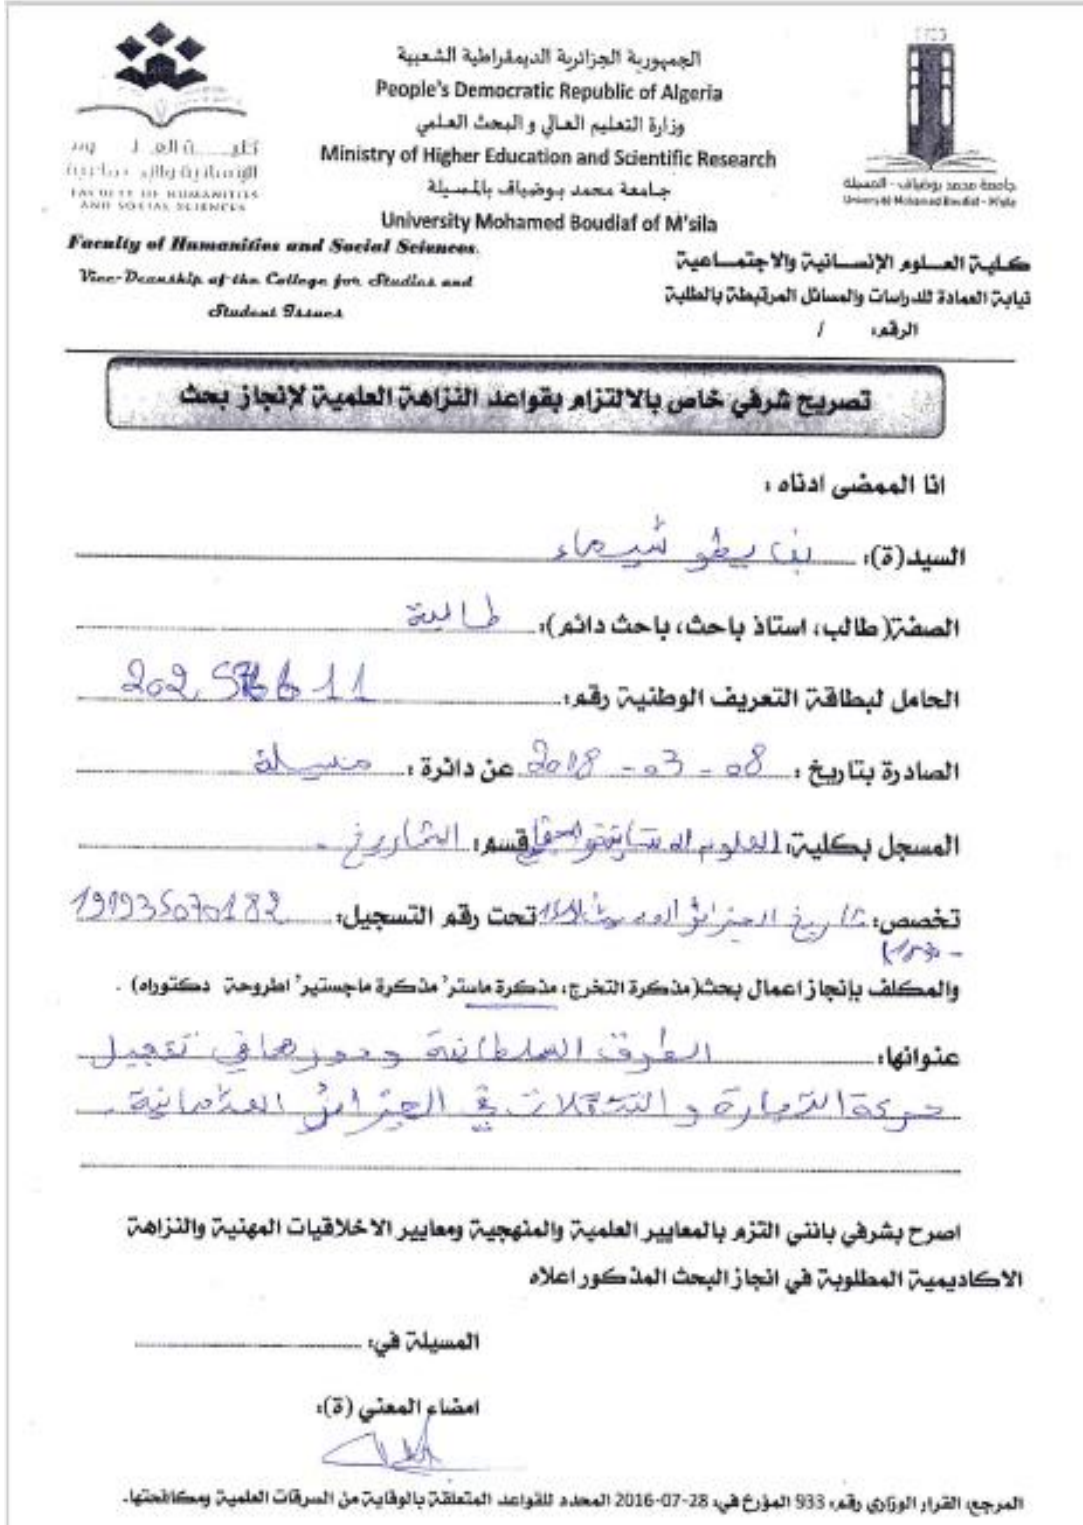 الجمهورية الجزائرية الديمقراطية الشعبية
People's Democratic Republic of Algeria
وزارة التعليم العالي و البحث العلمي
Ministry of Higher Education and Scientific Research
جامعة محمد بوضياف بالمسيلة
University Mohamed Boudiaf of M'sila
FACULTY OF HUMANITIES
AND SOCIAL SCIENCES
جامعة محمد بوضياف - المسيلة
Université Mohamed Boudiaf - M'sila
Faculty of Humanities and Social Sciences.
Vice-Deanship of the College for Studies and
Student Issues
كلية العلوم الإنسانية والاجتماعية
نيابة العمادة للدراسات والمسائل المرتبطة بالطلبة
الرقم: /
تصريح شرفي خاص بالالتزام بقواعد النزاهة العلمية لإنجاز بحث
انا الممضى ادناه :
السيد(ة): بن يطو شيماء
الصفة( طالب، استاذ باحث، باحث دائم): طالبة
الحامل لبطاقة التعريف الوطنية رقم:
الصادرة بتاريخ : 2018 - 03 - 08 عن دائرة : مسيلة
المسجل بكلية: العلوم قسم: التاريخ
تخصص: تاريخ الجزائر الحديث تحت رقم التسجيل: 191935070182
والمكلف بإنجاز اعمال بحث(مذكرة التخرج، مذكرة ماستر' مذكرة ماجستير' اطروحة دكتوراه) .
عنوانها: الطرق السلطانية ودورها في تفعيل
حركة التجارة و التنقلات في الجزائر العثمانية .
اصرح بشرفي بانني التزم بالمعايير العلمية والمنهجية ومعايير الاخلاقيات المهنية والنزاهة
الاكاديمية المطلوبة في انجاز البحث المذكور اعلاه
المسيلة في:
امضاء المعني (ة):
المرجع: القرار الوزاري رقم: 933 المؤرخ في: 28-07-2016 المحدد للقواعد المتعلقة بالوقاية من السرقات العلمية ومكافحتها.